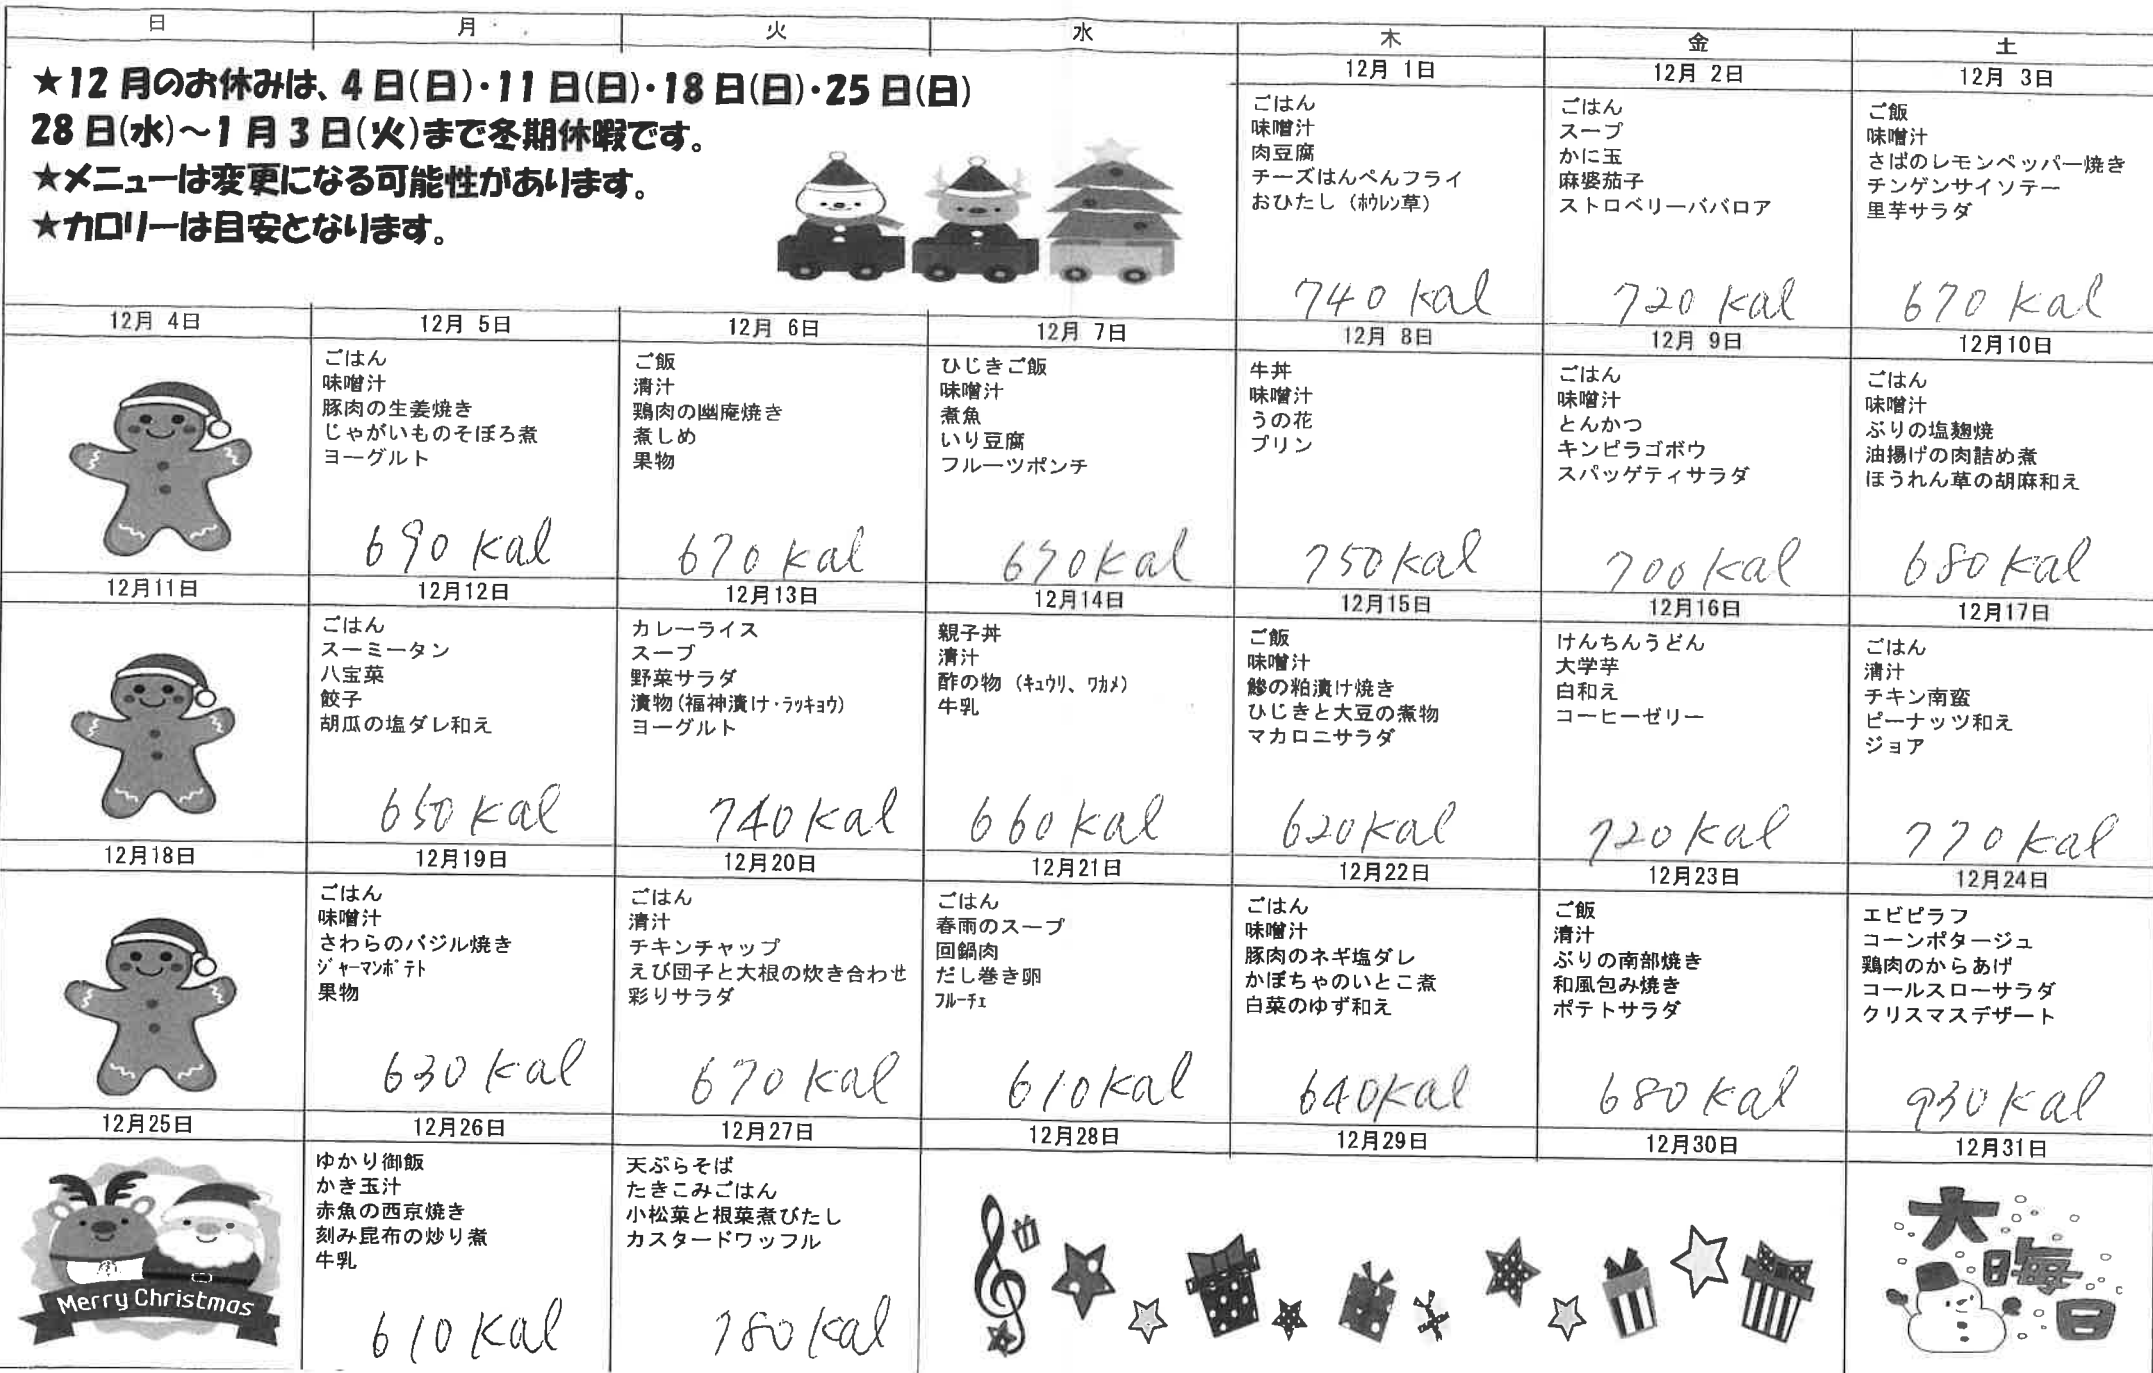 日 月 火 水 木 金 土
★12月のお休みは、4日(日)・11日(日)・18日(日)・25日(日)
28日(水)～1月3日(火)まで冬期休暇です。
★メニューは変更になる可能性があります。
★カロリーは目安となります。
12月 1日
ごはん
味噌汁
肉豆腐
チーズはんぺんフライ
おひたし（ﾎｳﾚﾝ草）
740 kal
12月 2日
ごはん
スープ
かに玉
麻婆茄子
ストロベリーババロア
720 kal
12月 3日
ご飯
味噌汁
さばのレモンペッパー焼き
チンゲンサイソテー
里芋サラダ
670 kal
12月 4日
12月 5日
ごはん
味噌汁
豚肉の生姜焼き
じゃがいものそぼろ煮
ヨーグルト
690 kal
12月 6日
ご飯
清汁
鶏肉の幽庵焼き
煮しめ
果物
670 kal
12月 7日
ひじきご飯
味噌汁
煮魚
いり豆腐
フルーツポンチ
kal
12月 8日
牛丼
味噌汁
うの花
プリン
750 kal
12月 9日
ごはん
味噌汁
とんかつ
キンピラゴボウ
スパッゲティサラダ
700 kal
12月10日
ごはん
味噌汁
ぶりの塩麹焼
油揚げの肉詰め煮
ほうれん草の胡麻和え
680 kal
12月11日
12月12日
ごはん
スーミータン
八宝菜
餃子
胡瓜の塩ダレ和え
650 kal
12月13日
カレーライス
スープ
野菜サラダ
漬物(福神漬け・ﾗｯｷｮｳ)
ヨーグルト
740 kal
12月14日
親子丼
清汁
酢の物（ｷｭｳﾘ、ﾜｶﾒ）
牛乳
660 kal
12月15日
ご飯
味噌汁
鰺の粕漬け焼き
ひじきと大豆の煮物
マカロニサラダ
620 kal
12月16日
けんちんうどん
大学芋
白和え
コーヒーゼリー
720 kal
12月17日
ごはん
清汁
チキン南蛮
ピーナッツ和え
ジョア
770 kal
12月18日
12月19日
ごはん
味噌汁
さわらのバジル焼き
ｼﾞｬｰﾏﾝﾎﾟﾃﾄ
果物
630 kal
12月20日
ごはん
清汁
チキンチャップ
えび団子と大根の炊き合わせ
彩りサラダ
670 kal
12月21日
ごはん
春雨のスープ
回鍋肉
だし巻き卵
ﾌﾙｰﾁｪ
610 kal
12月22日
ごはん
味噌汁
豚肉のネギ塩ダレ
かぼちゃのいとこ煮
白菜のゆず和え
640 kal
12月23日
ご飯
清汁
ぶりの南部焼き
和風包み焼き
ポテトサラダ
680 kal
12月24日
エビピラフ
コーンポタージュ
鶏肉のからあげ
コールスローサラダ
クリスマスデザート
930 kal
12月25日
Merry Christmas
12月26日
ゆかり御飯
かき玉汁
赤魚の西京焼き
刻み昆布の炒り煮
牛乳
610 kal
12月27日
天ぷらそば
たきこみごはん
小松菜と根菜煮びたし
カスタードワッフル
780 kal
12月28日
12月29日
12月30日
12月31日
大晦日